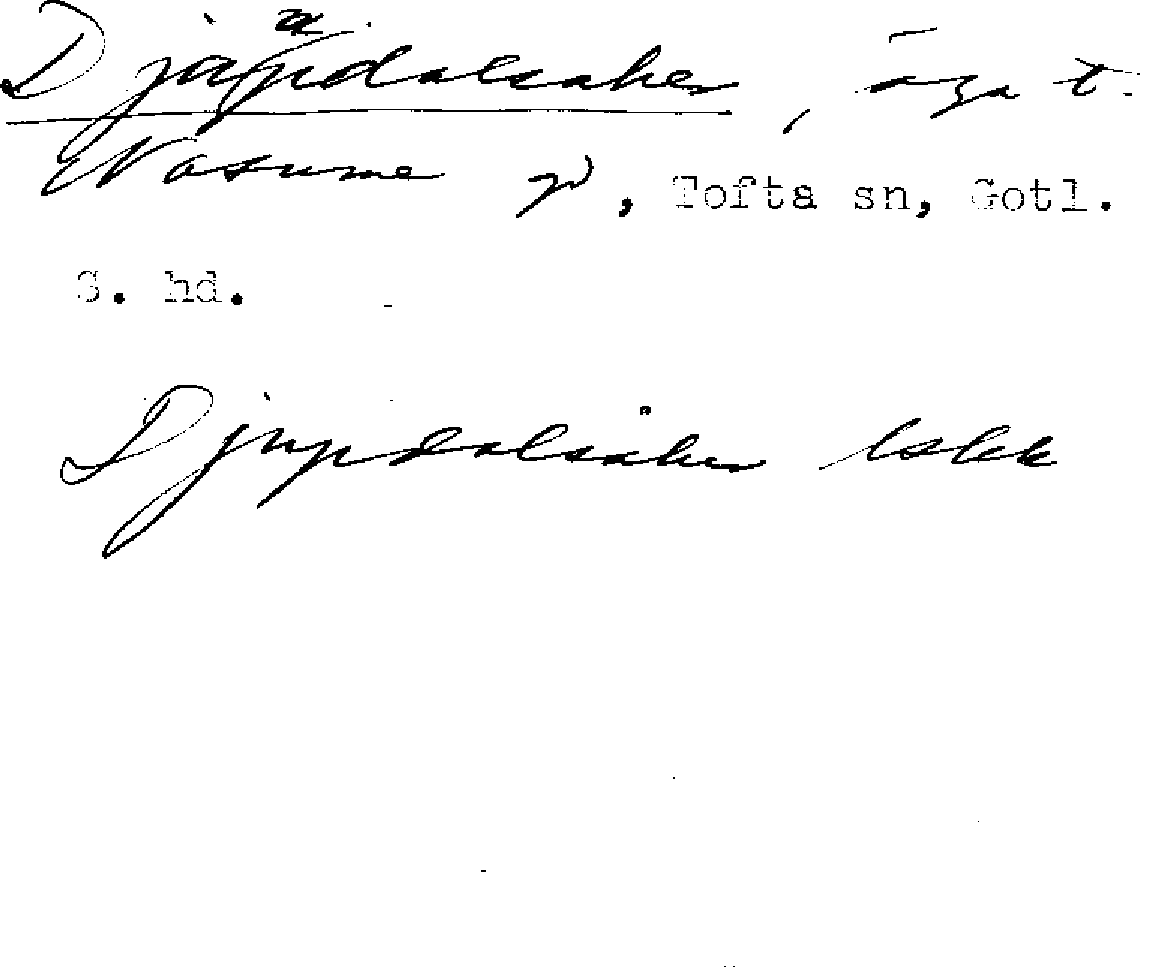 Djupdalsaker, äga t.
Nasume g, Tofta sn, Gotl.
S. hd.
Djupdalsåker Lskk